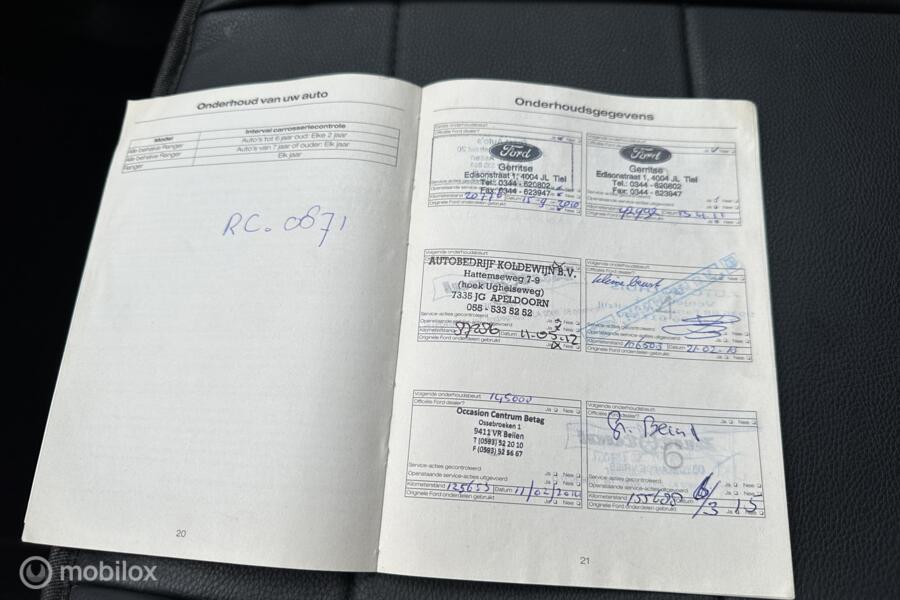 Onderhoud van uw auto
Model
Interval carrosseriecontrole
Alle behalve Ranger
Auto's tot 6 jaar oud: Elke 2 jaar
Alle behalve Ranger
Auto's van 7 jaar of ouder: Elk jaar
Ranger
Elk jaar
RC. 0871
20
Onderhoudsgegevens
Eerste onderhoudsbeurt
Officiële Ford dealer?
Ja Nee
Ford
Gerritse
Edisonstraat 1, 4004 JL Tiel
Tel.: 0344 - 620802
Fax: 0344 - 623947
Operationstaande service-acties uitgevoerd
Kilometerstand Datum 15-9-2010
Originele Ford onderdelen gebruikt
Ja Nee
Volgende onderhoudsbeurt
Officiële Ford dealer?
Ja Nee
Ford
Gerritse
Edisonstraat 1, 4004 JL Tiel
Tel.: 0344 - 620802
Fax: 0344 - 623947
Originele Ford
Volgende onderhoudsbeurt
AUTOBEDRIJF KOLDEWIJN B.V.
Hattemseweg 7-9
(hoek Ugchelseweg)
7335 JG APELDOORN
055 - 533 52 52
Service-acties gecontroleerd
Openstaande service-acties uitgevoerd
Kilometerstand Datum 11-05-12
Originele Ford onderdelen gebruikt
Ja Nee
Volgende onderhoudsbeurt
Officiële Ford dealer?
kleine Beurt
Service-acties gecontroleerd
Openstaande service-acties uitgevoerd
Kilometerstand 106503 Datum 21-02-13
Originele Ford onderdelen gebruikt
Ja Nee
Volgende onderhoudsbeurt 145000
Officiële Ford dealer?
Ja Nee
Occasion Centrum Betag
Ossebroeken 1
9411 VR Beilen
T (0593) 52 20 10
F (0593) 52 56 67
Service-acties gecontroleerd
Openstaande service-acties uitgevoerd
Kilometerstand 125653 Datum 11/02/2014
Originele Ford onderdelen gebruikt
Ja Nee
Volgende onderhoudsbeurt
Officiële Ford dealer?
Ja Nee
Gr. Beurt
Service-acties gecontroleerd
Openstaande service-acties uitgevoerd
Kilometerstand Datum 6/3 15
Originele Ford onderdelen gebruikt
Ja Nee
21
mobilox